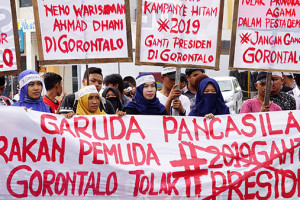 NENO WARISMAN
AHMAD DHANI
DI GORONTALO
KAMPANYE HITAM
#2019
GANTI PRESIDEN
DI GORONTALO
TOLAK
DALAM PESTA DEM
#JANGAN GANG
GORONTAL
GARUDA PANCASILA
RAKAN PEMUDA #2019GANTI
GORONTALO TOLAK PRESIDE